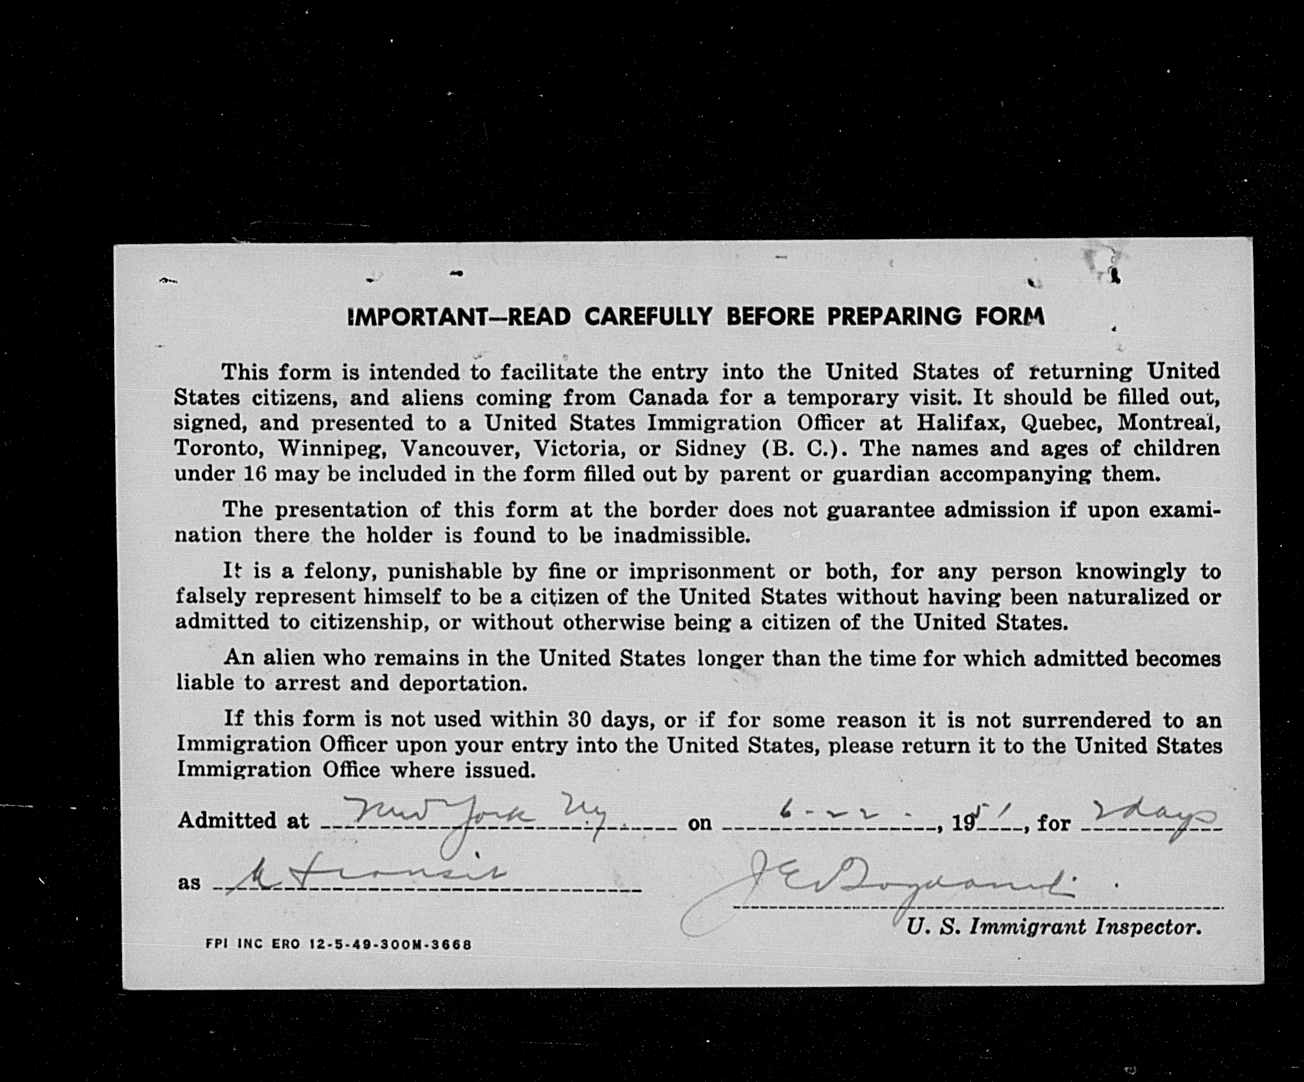 IMPORTANT—READ CAREFULLY BEFORE PREPARING FORM
This form is intended to facilitate the entry into the United States of returning United
States citizens, and aliens coming from Canada for a temporary visit. It should be filled out,
signed, and presented to a United States Immigration Officer at Halifax, Quebec, Montreal,
Toronto, Winnipeg, Vancouver, Victoria, or Sidney (B. C.). The names and ages of children
under 16 may be included in the form filled out by parent or guardian accompanying them.
The presentation of this form at the border does not guarantee admission if upon exami-
nation there the holder is found to be inadmissible.
It is a felony, punishable by fine or imprisonment or both, for any person knowingly to
falsely represent himself to be a citizen of the United States without having been naturalized or
admitted to citizenship, or without otherwise being a citizen of the United States.
An alien who remains in the United States longer than the time for which admitted becomes
liable to arrest and deportation.
If this form is not used within 30 days, or if for some reason it is not surrendered to an
Immigration Officer upon your entry into the United States, please return it to the United States
Immigration Office where issued.
Admitted at New York NY. on 6-22, 1951, for 2 days
as transit
U. S. Immigrant Inspector.
FPI INC ERO 12-5-49-300M-3668